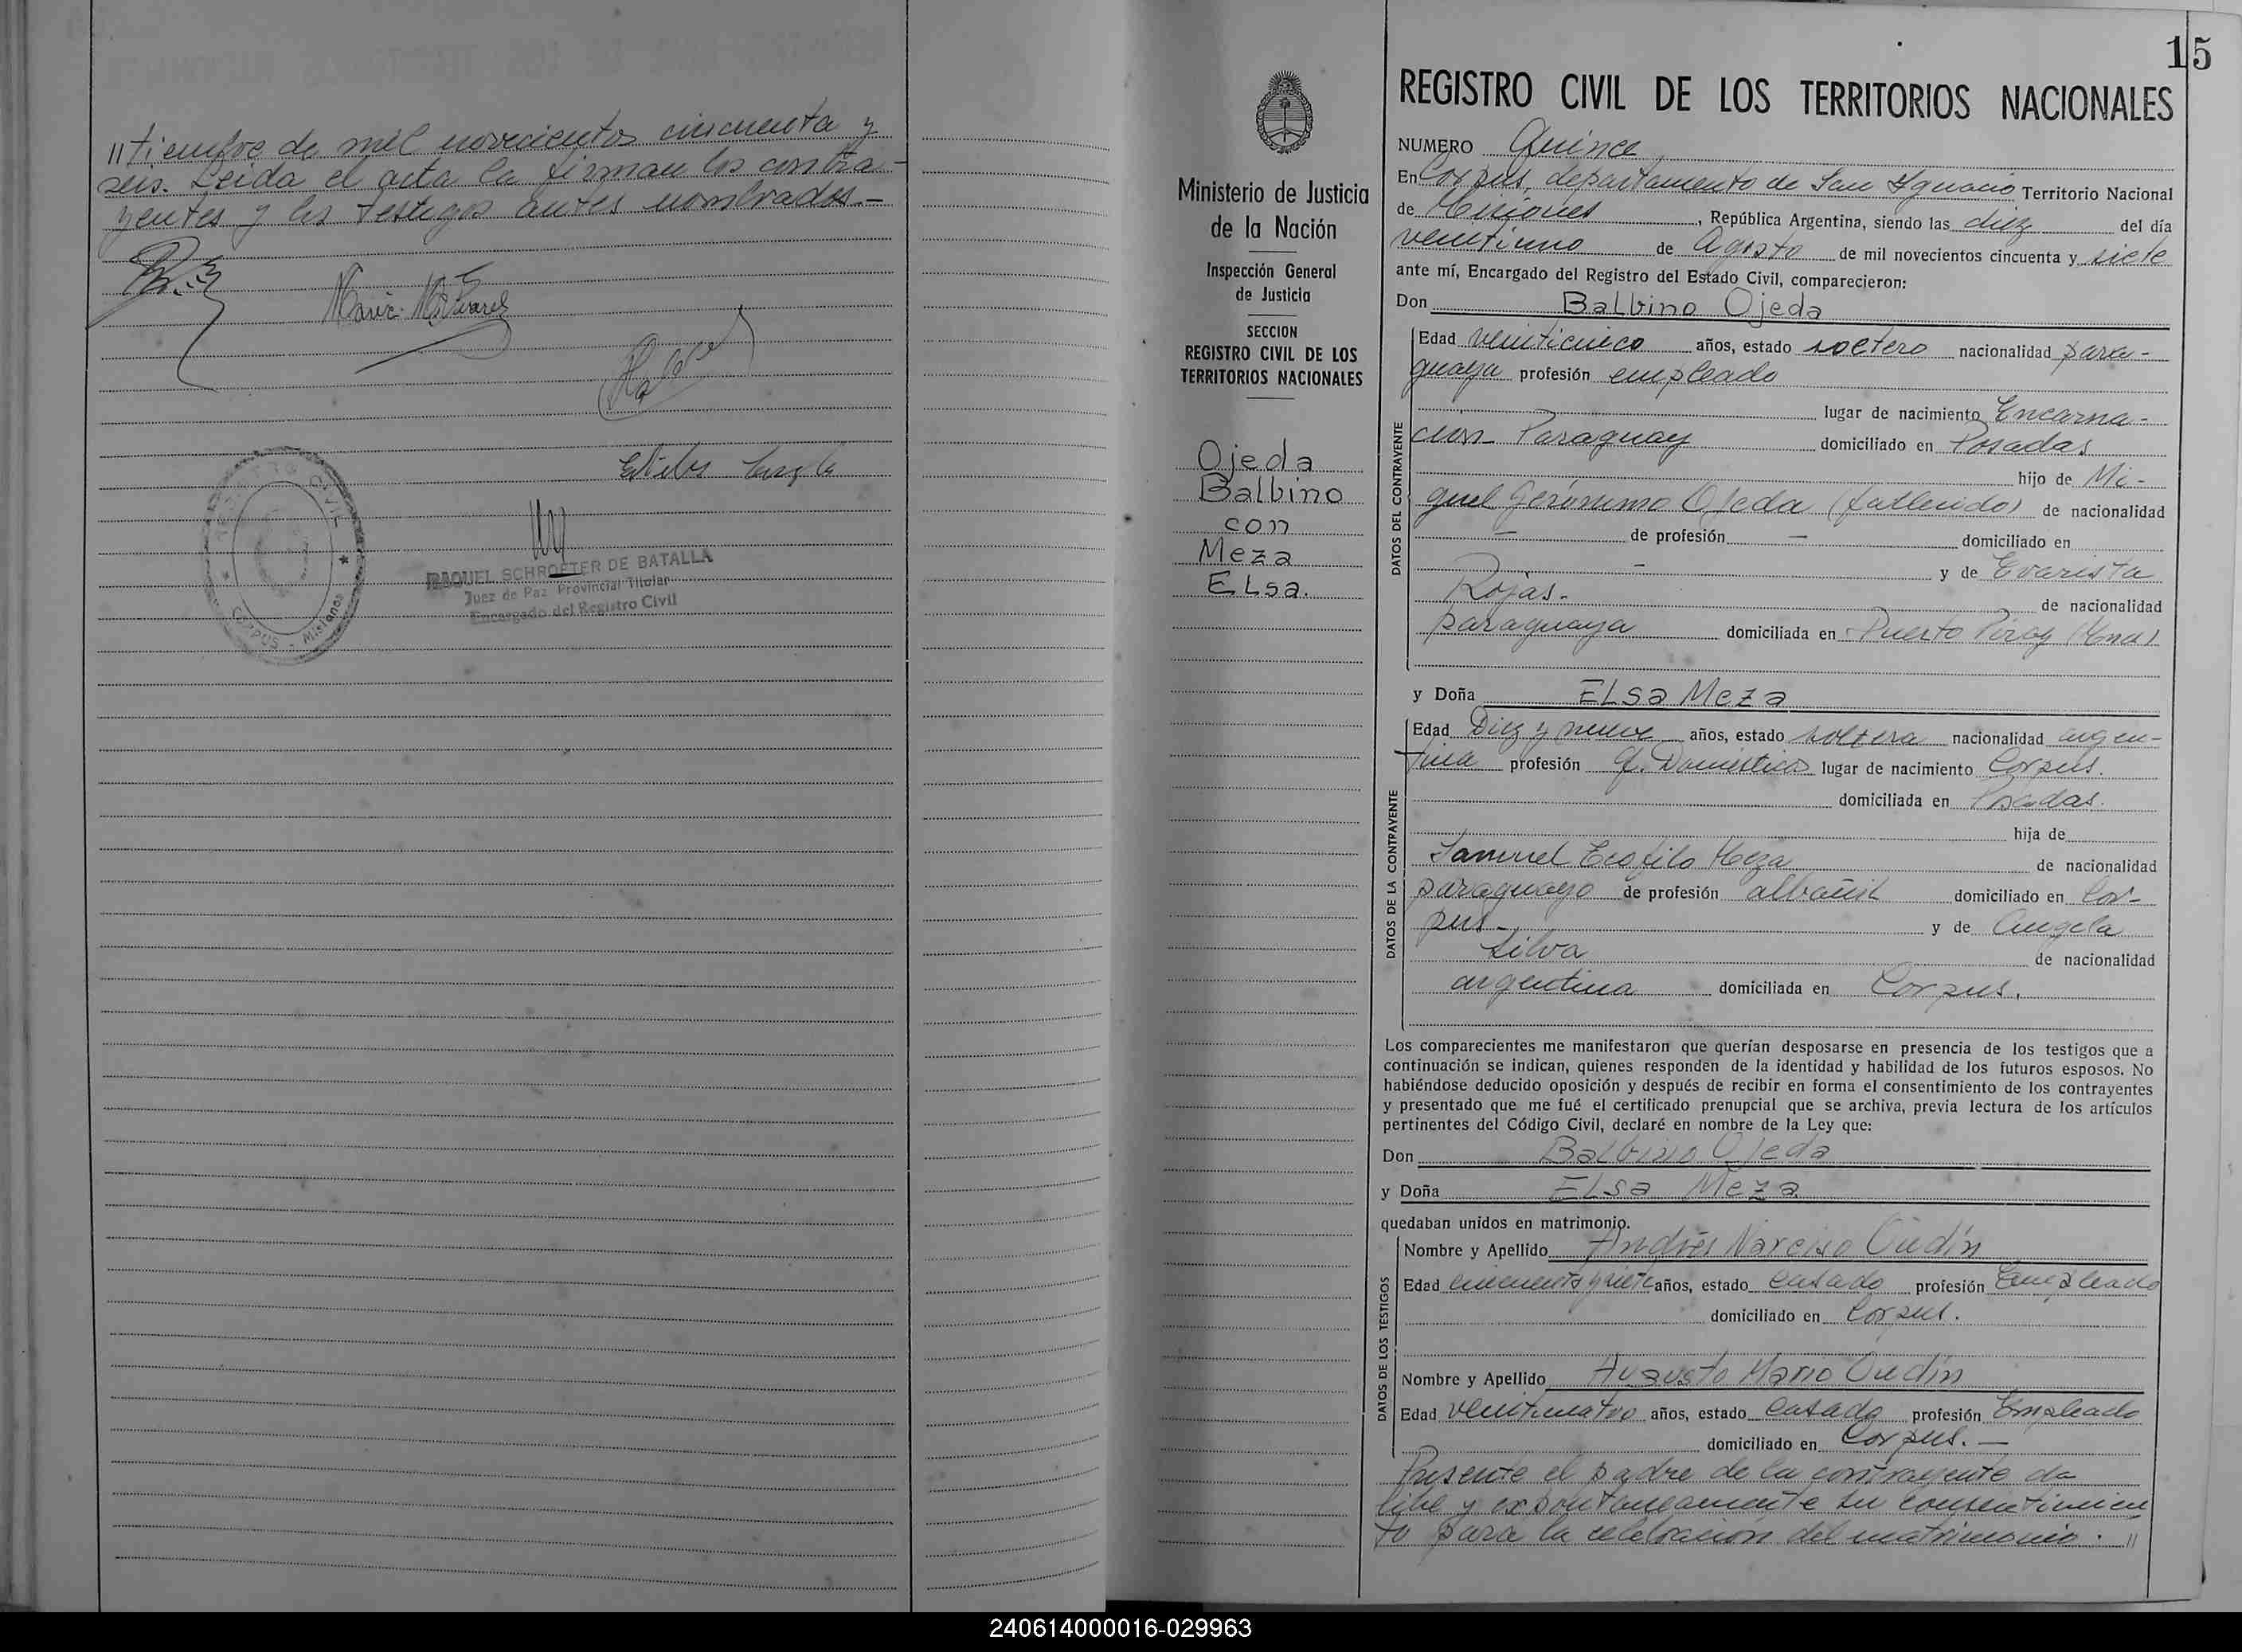 //tiembre de mil novecientos cincuenta y
seis. Leida el acta la firman los contra-
yentes y los testigos antes nombrados.-
REGISTRO CIVIL
CORPUS - Misiones
RAQUEL SCHROETER DE BATALLA
Juez de Paz Provincial Titular
Encargado del Registro Civil
15
Ministerio de Justicia
de la Nación
Inspección General
de Justicia
SECCION
REGISTRO CIVIL DE LOS
TERRITORIOS NACIONALES
Ojeda
Balbino
con
Meza
Elsa.
REGISTRO CIVIL DE LOS TERRITORIOS NACIONALES
NUMERO Quince
En Corpus, departamento de San Ignacio Territorio Nacional
de Misiones, República Argentina, siendo las diez del día
veintiuno de Agosto de mil novecientos cincuenta y siete
ante mí, Encargado del Registro del Estado Civil, comparecieron:
Don Balbino Ojeda
DATOS DEL CONTRAYENTE
Edad veinticinco años, estado soltero nacionalidad para-
guaya profesión empleado
lugar de nacimiento Encarna-
cion Paraguay domiciliado en Posadas
hijo de Mi-
guel Gerónimo Ojeda (fallecido) de nacionalidad
— de profesión — domiciliado en
— y de Evarista
Rojas.- de nacionalidad
paraguaya domiciliada en Puerto Piray
y Doña Elsa Meza
DATOS DE LA CONTRAYENTE
Edad Diez y nueve años, estado soltera nacionalidad argen-
tina profesión q. Domésticos lugar de nacimiento Corpus.
domiciliada en Posadas.
hija de
Samuel Teofilo Meza de nacionalidad
paraguayo de profesión albañil domiciliado en Cor-
pus.- y de Angela
Silva de nacionalidad
argentina domiciliada en Corpus.
Los comparecientes me manifestaron que querían desposarse en presencia de los testigos que a
continuación se indican, quienes responden de la identidad y habilidad de los futuros esposos. No
habiéndose deducido oposición y después de recibir en forma el consentimiento de los contrayentes
y presentado que me fué el certificado prenupcial que se archiva, previa lectura de los artículos
pertinentes del Código Civil, declaré en nombre de la Ley que:
Don Balbino Ojeda
y Doña Elsa Meza
quedaban unidos en matrimonio.
DATOS DE LOS TESTIGOS
Nombre y Apellido Andrés Narciso Oudin
Edad cincuenta y siete años, estado casado profesión Empleado
domiciliado en Corpus.
Nombre y Apellido Augusto Mario Oudin
Edad veinticuatro años, estado casado profesión Empleado
domiciliado en Corpus.—
Presente el padre de la contrayente da
libe y expontaneamente su consentimien
to para la celebracion del matrimonio. //
240614000016-029963